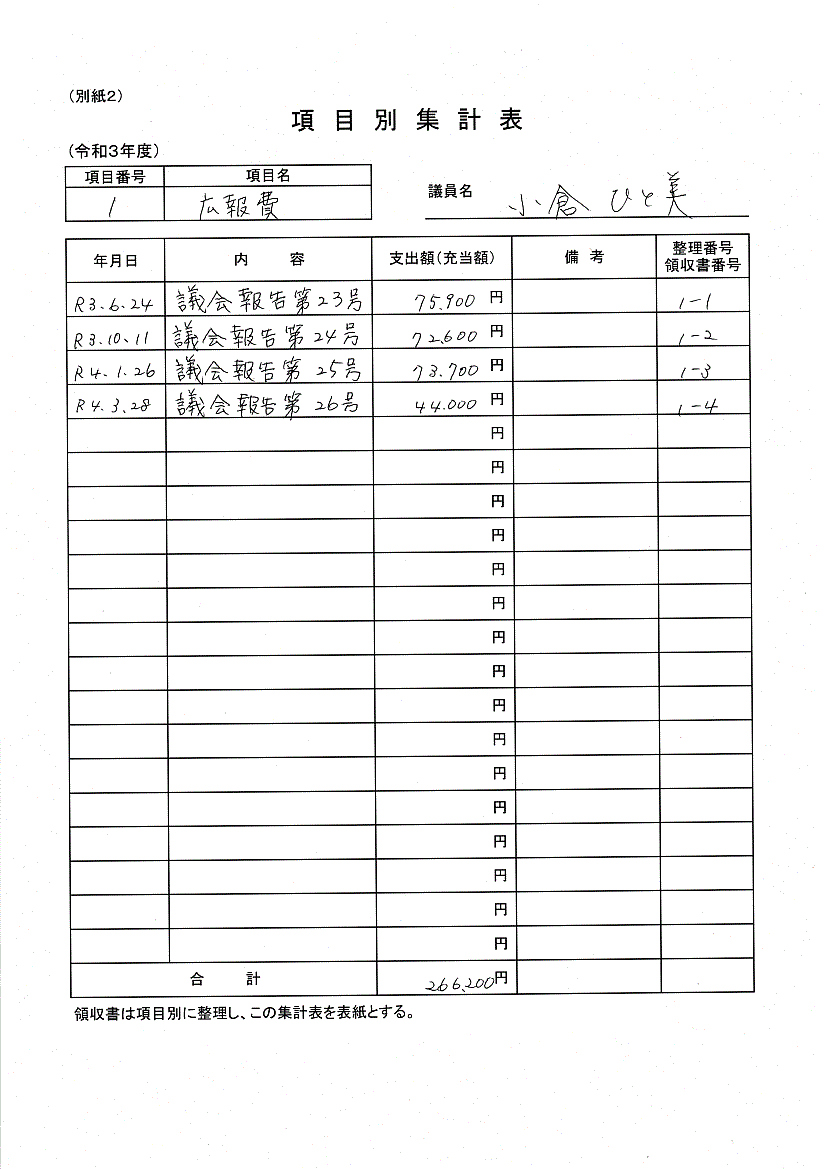 (別紙2)
項目別集計表
(令和3年度)
項目番号 項目名
1 広報費
議員名 小倉ひと美
年月日 内容 支出額(充当額) 備考 整理番号 領収書番号
R3.6.24 議会報告第23号 75,900円 1-1
R3.10.11 議会報告第24号 72,600円 1-2
R4.1.26 議会報告第25号 73,700円 1-3
R4.3.28 議会報告第26号 44,000円 1-4
円
円
円
円
円
円
円
円
円
円
円
円
円
円
円
円
合計 266,200円
領収書は項目別に整理し、この集計表を表紙とする。